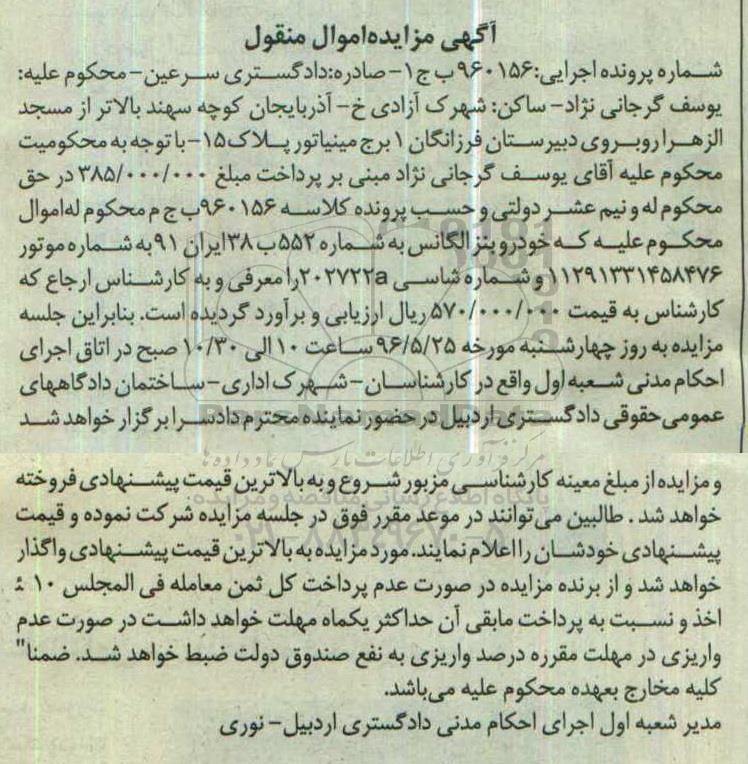 آگهی مزایده اموال منقول
شماره پرونده اجرایی: ۹۶۰۱۵۶ ب ج ۱- صادره: دادگستری سرعین- محکوم علیه:
یوسف گرجانی نژاد- ساکن: شهرک آزادی خ- آذربایجان کوچه سهند بالاتر از مسجد
الزهرا روبروی دبیرستان فرزانگان ۱ برج مینیاتور پلاک ۱۵- با توجه به محکومیت
محکوم علیه آقای یوسف گرجانی نژاد مبنی بر پرداخت مبلغ ۳۸۵/۰۰۰/۰۰۰ در حق
محکوم له و نیم عشر دولتی و حسب پرونده کلاسه ۹۶۰۱۵۶ ب ج م محکوم له اموال
محکوم علیه که خودرو بنز الگانس به شماره ۵۵۲ ب ۳۸ ایران ۹۱ به شماره موتور
۱۱۲۹۱۳۳۱۴۵۸۴۷۶ و شماره شاسی ۲۰۲۷۲۲a را معرفی و به کارشناس ارجاع که
کارشناس به قیمت ۵۷۰/۰۰۰/۰۰۰ ریال ارزیابی و برآورد گردیده است. بنابراین جلسه
مزایده به روز چهارشنبه مورخه ۹۶/۵/۲۵ ساعت ۱۰ الی ۱۰/۳۰ صبح در اتاق اجرای
احکام مدنی شعبه اول واقع در کارشناسان- شهرک اداری- ساختمان دادگاههای
عمومی حقوقی دادگستری اردبیل در حضور نماینده محترم دادسرا برگزار خواهد شد
مرکز فرآوری اطلاعات پارس نماد داده ها
و مزایده از مبلغ معینه کارشناسی مزبور شروع و به بالاترین قیمت پیشنهادی فروخته
خواهد شد. طالبین می توانند در موعد مقرر فوق در جلسه مزایده شرکت نموده و قیمت
پیشنهادی خودشان را اعلام نمایند. مورد مزایده به بالاترین قیمت پیشنهادی واگذار
خواهد شد و از برنده مزایده در صورت عدم پرداخت کل ثمن معامله فی المجلس ۱۰ ٪
اخذ و نسبت به پرداخت مابقی آن حداکثر یکماه مهلت خواهد داشت در صورت عدم
واریزی در مهلت مقرره درصد واریزی به نفع صندوق دولت ضبط خواهد شد. ضمنا"
کلیه مخارج بعهده محکوم علیه می باشد.
مدیر شعبه اول اجرای احکام مدنی دادگستری اردبیل- نوری